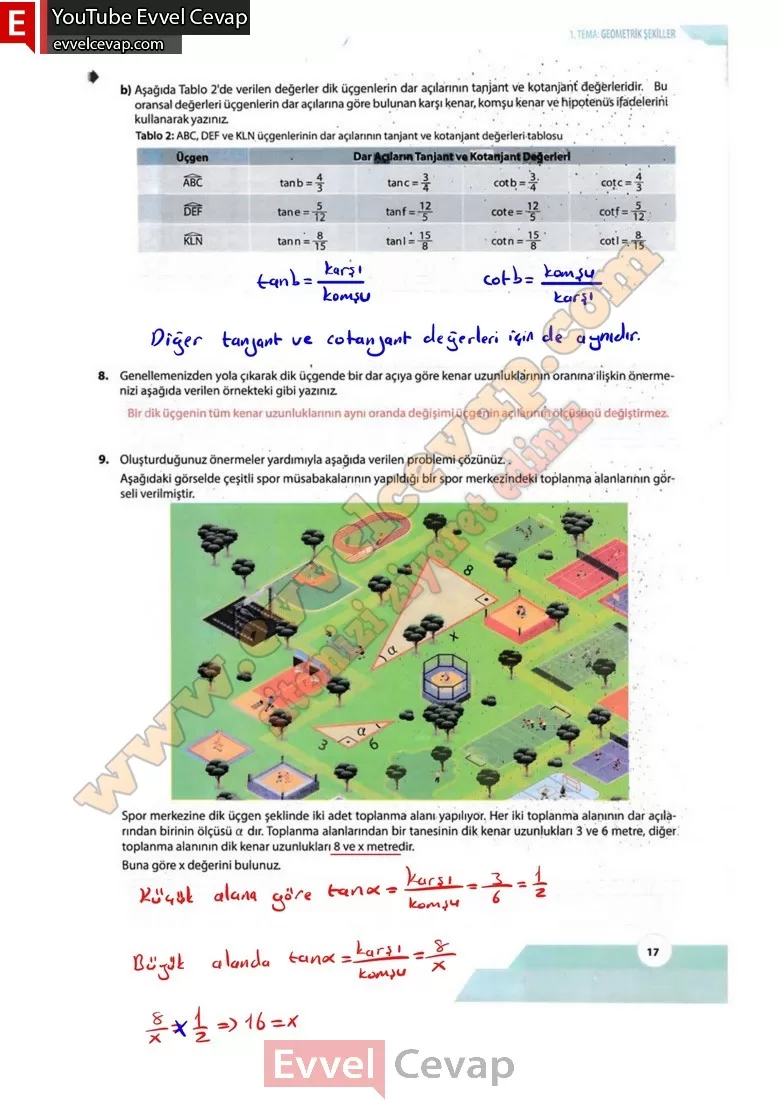 YouTube Evvel Cevap
evvelcevap.com
1. TEMA: GEOMETRİK ŞEKİLLER
b) Aşağıda Tablo 2'de verilen değerler dik üçgenlerin dar açılarının tanjant ve kotanjant değerleridir. Bu
oransal değerleri üçgenlerin dar açılarına göre bulunan karşı kenar, komşu kenar ve hipotenüs ifadelerini
kullanarak yazınız.
Tablo 2: ABC, DEF ve KLN üçgenlerinin dar açılarının tanjant ve kotanjant değerleri tablosu
Üçgen Dar Açıların Tanjant ve Kotanjant Değerleri
ABC tan b = 4/3 tan c = 3/4 cot b = 3/4 cot c = 4/3
DEF tan e = 5/12 tan f = 12/5 cot e = 12/5 cot f = 5/12
KLN tan n = 8/15 tan l = 15/8 cot n = 15/8 cot l = 8/15
tanb = karşı/komşu cotb = komşu/karşı
Diğer tanjant ve cotanjant değerleri için de aynıdır.
8. Genellemenizden yola çıkarak dik üçgende bir dar açıya göre kenar uzunluklarının oranına ilişkin önerme-
nizi aşağıda verilen örnekteki gibi yazınız.
Bir dik üçgenin tüm kenar uzunluklarının aynı oranda değişimi üçgenin açılarının ölçüsünü değiştirmez.
9. Oluşturduğunuz önermeler yardımıyla aşağıda verilen problemi çözünüz.
Aşağıdaki görselde çeşitli spor müsabakalarının yapıldığı bir spor merkezindeki toplanma alanlarının gör-
seli verilmiştir.
8
x
α
α
3 6
www.evvelcevap.com
sitemizi ziyaret ediniz
Spor merkezine dik üçgen şeklinde iki adet toplanma alanı yapılıyor. Her iki toplanma alanının dar açıla-
rından birinin ölçüsü α dır. Toplanma alanlarından bir tanesinin dik kenar uzunlukları 3 ve 6 metre, diğer
toplanma alanının dik kenar uzunlukları 8 ve x metredir.
Buna göre x değerini bulunuz.
Küçük alana göre tanα = karşı/komşu = 3/6 = 1/2
Büyük alanda tanα = karşı/komşu = 8/x
8/x = 1/2 => 16 = x
17
Evvel Cevap